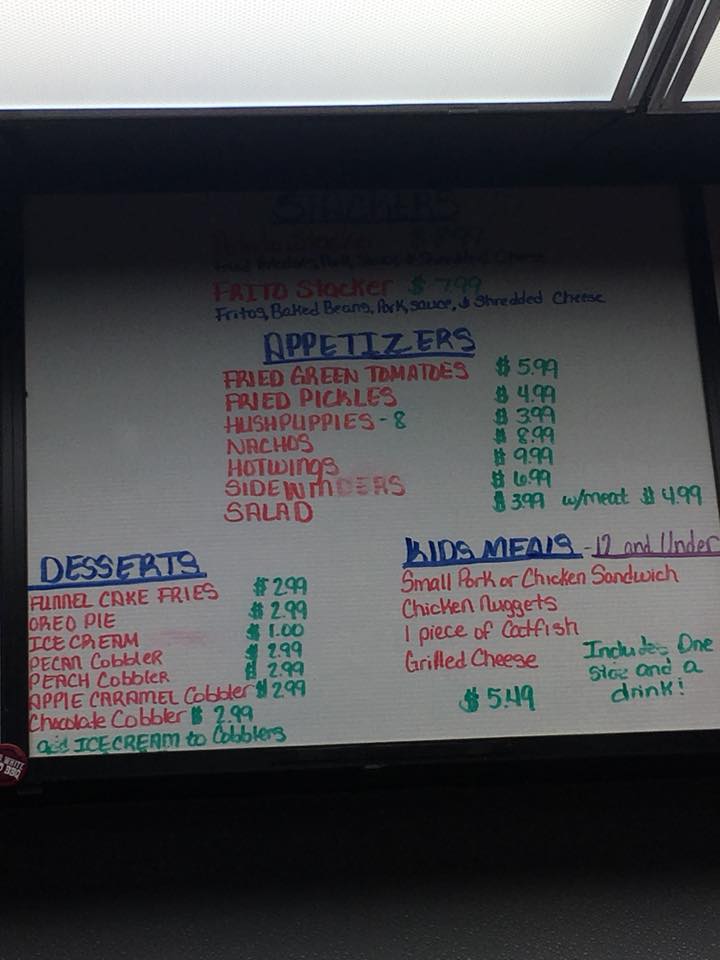 STACKERS
FRITO Stacker $ 7.99
Fritos, Baked Beans, Pork, sauce, & Shredded Cheese
APPETIZERS
FRIED GREEN TOMATOES $ 5.99
FRIED PICKLES $ 4.99
HUSHPUPPIES - 8 $ 3.99
NACHOS $ 8.99
HOTWINGS $ 9.99
SIDEWINDERS $ 6.99
SALAD $ 3.99 w/meat $ 4.99
DESSERTS
FUNNEL CAKE FRIES $ 2.99
OREO PIE $ 2.99
ICE CREAM $ 1.00
PECAN Cobbler $ 2.99
PEACH Cobbler $ 2.99
APPLE CARAMEL Cobbler $ 2.99
Chocolate Cobbler $ 2.99
add ICE CREAM to Cobblers
KIDS MEALS - 12 and Under
Small Pork or Chicken Sandwich
Chicken Nuggets
1 piece of Catfish
Grilled Cheese
$ 5.49
Includes One
Side and a
drink!
WHITE
BBQ